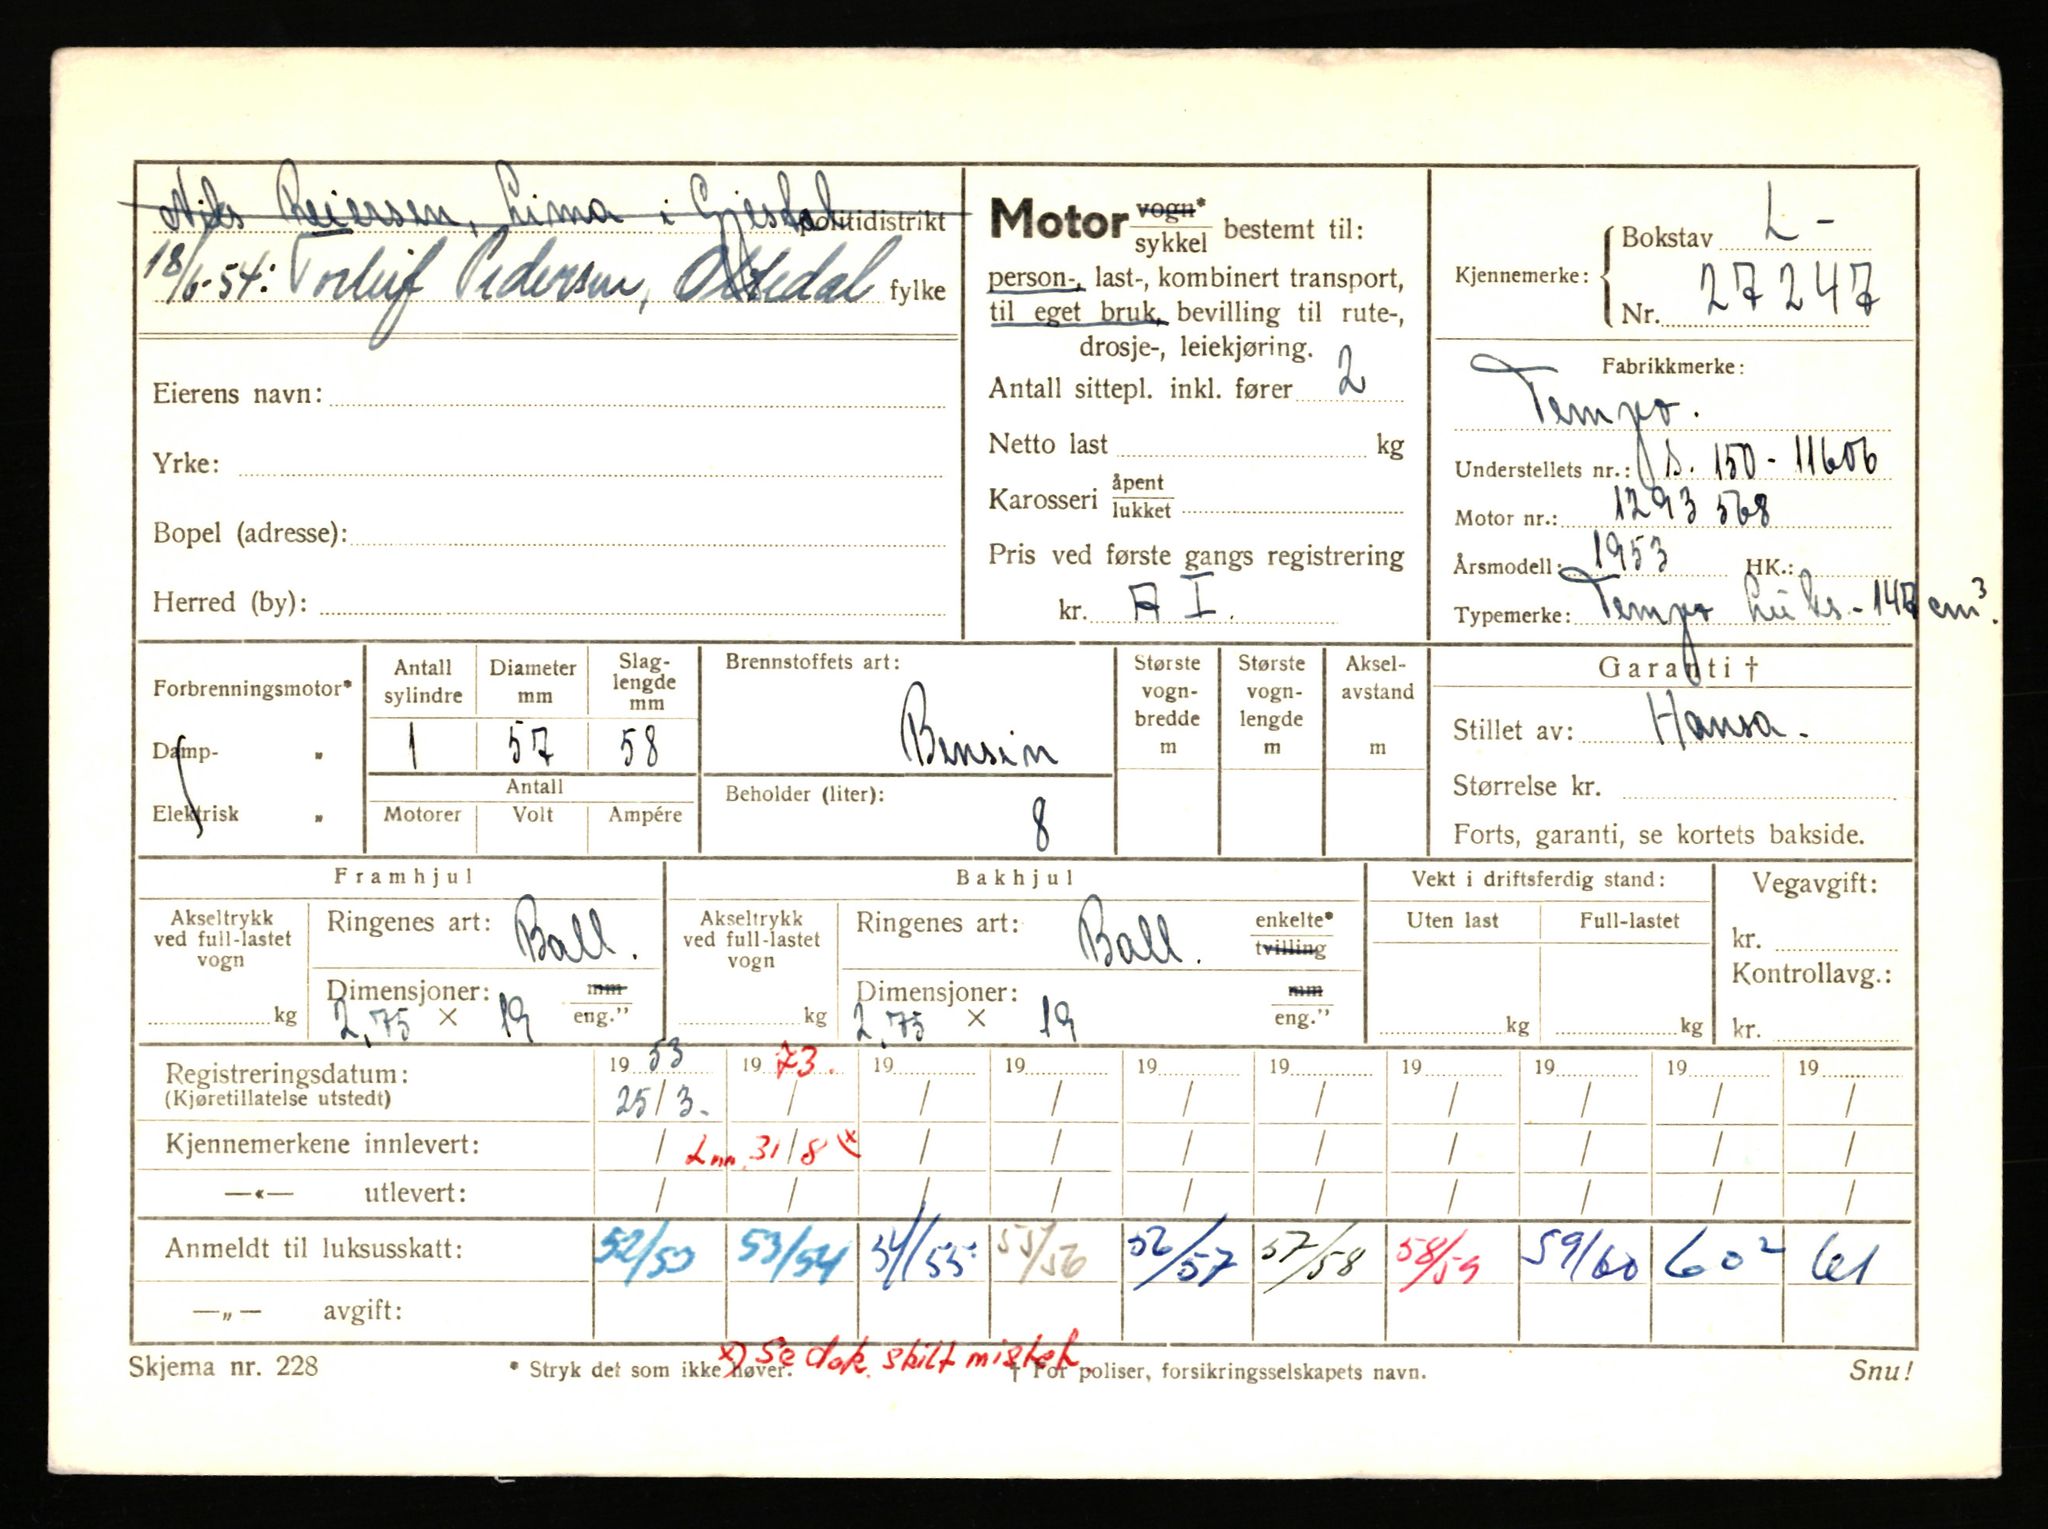 Niels Reiersen, Lima i Gjesdal politidistrikt
18/6-54: Torleif Pedersen, Oltedal fylke
Eierens navn:
Yrke:
Bopel (adresse):
Herred (by):
Motor vogn* sykkel bestemt til:
person-, last-, kombinert transport,
til eget bruk, bevilling til rute-,
drosje-, leiekjøring.
Antall sittepl. inkl. fører 2
Netto last kg
Karosseri åpent lukket
Pris ved første gangs registrering
kr. A I.
Kjennemerke: Bokstav L -
Nr. 27247
Fabrikkmerke:
Tempo.
Understellets nr.: S. 150 - 11606
Motor nr.: 1293 568
Årsmodell: 1953 HK.:
Typemerke: Tempo Luks. - 147 cm³.
Forbrenningsmotor*
Damp- „
Elektrisk „
Antall sylindre Diameter mm Slag-lengde mm
1 57 58
Antall
Motorer Volt Ampére
Brennstoffets art:
Bensin
Beholder (liter):
8
Største vogn-bredde m
Største vogn-lengde m
Aksel-avstand m
Garanti †
Stillet av: Hansa.
Størrelse kr.
Forts, garanti, se kortets bakside.
Framhjul
Akseltrykk ved full-lastet vogn
kg
Ringenes art: Ball.
Dimensjoner: mm
2,75 × 19 eng.”
Bakhjul
Akseltrykk ved full-lastet vogn
kg
Ringenes art: Ball. enkelte* tvilling
Dimensjoner: mm
2,75 × 19 eng.”
Vekt i driftsferdig stand:
Uten last Full-lastet
kg kg
Vegavgift:
kr.
Kontrollavg.:
kr.
Registreringsdatum: 19 53 19 73. 19 19 19 19 19 19 19 19
(Kjøretillatelse utstedt) 25/3. / / / / / / / / /
Kjennemerkene innlevert: / Lnn. 31/8 x) / / / / / / / /
—«— utlevert: / / / / / / / / / /
Anmeldt til luksusskatt: 52/53 53/54 54/55 55/56 56/57 57/58 58/59 59/60 60² 61
—„— avgift:
x) Se dok. skilt mistet.
Skjema nr. 228 * Stryk det som ikke høver. † For poliser, forsikringsselskapets navn. Snu!